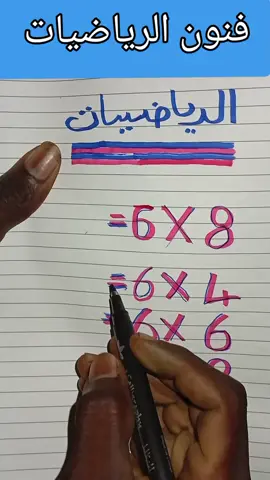 فنون الرياضيات
الرياضيات
8 X 6 =
4 X 6 =
6 X 6 =
8